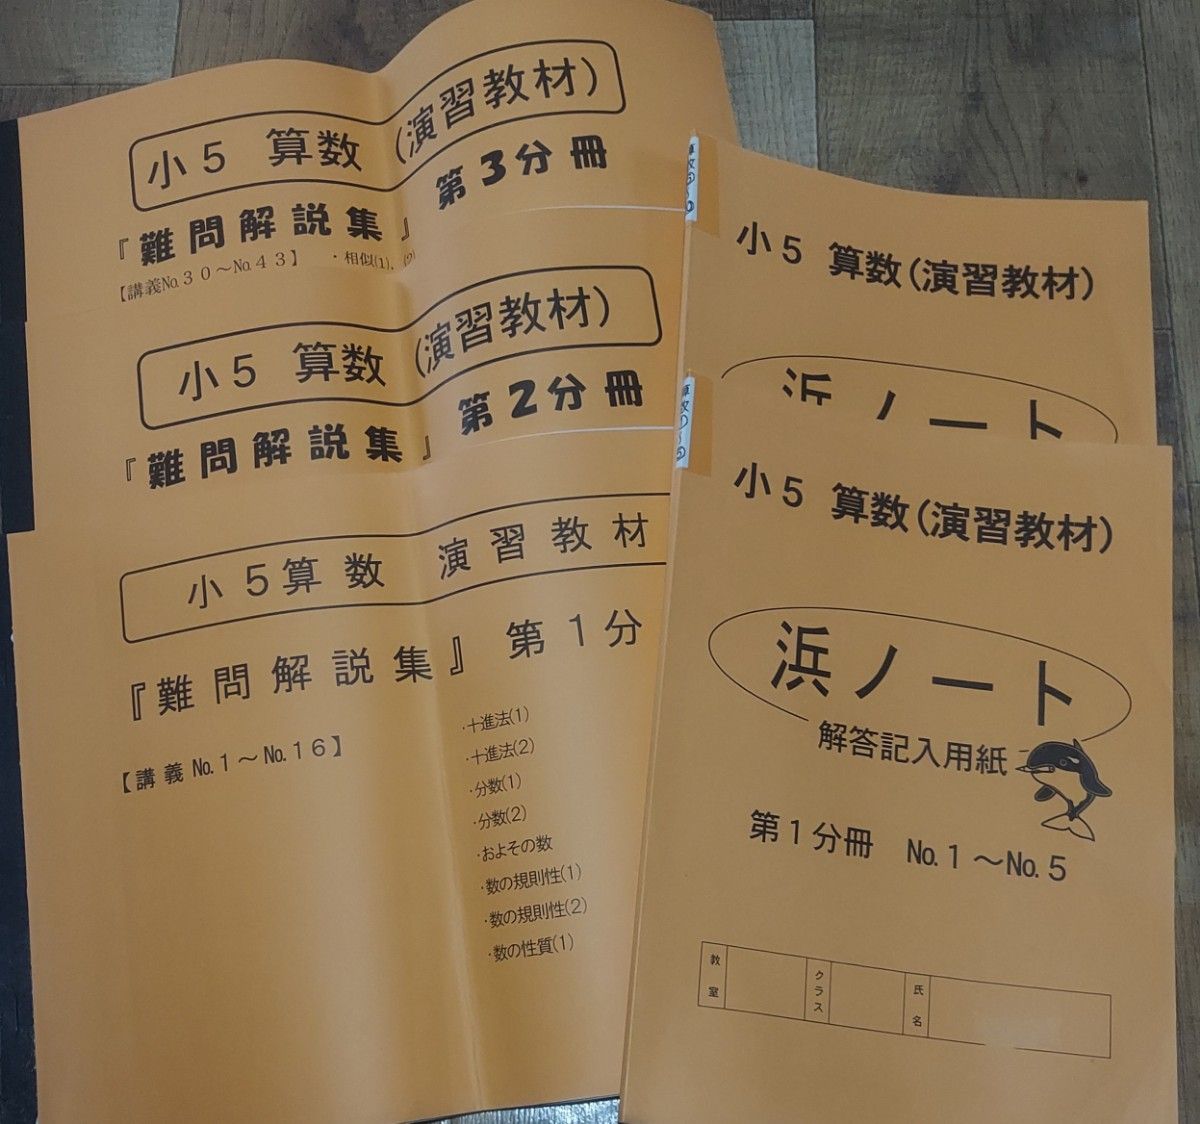 小5 算数(演習教材)
『難問解説集』 第3分冊
【講義No.30～No.43】 ・相似(1)、(2)
小5 算数(演習教材)
『難問解説集』 第2分冊
小5算数 演習教材
『難問解説集』 第1分
【講義No.1～No.16】
・十進法(1)
・十進法(2)
・分数(1)
・分数(2)
・およその数
・数の規則性(1)
・数の規則性(2)
・数の性質(1)
小5 算数(演習教材)
浜ノート
小5 算数(演習教材)
浜ノート
解答記入用紙
第1分冊 No.1～No.5
教室 クラス 氏名